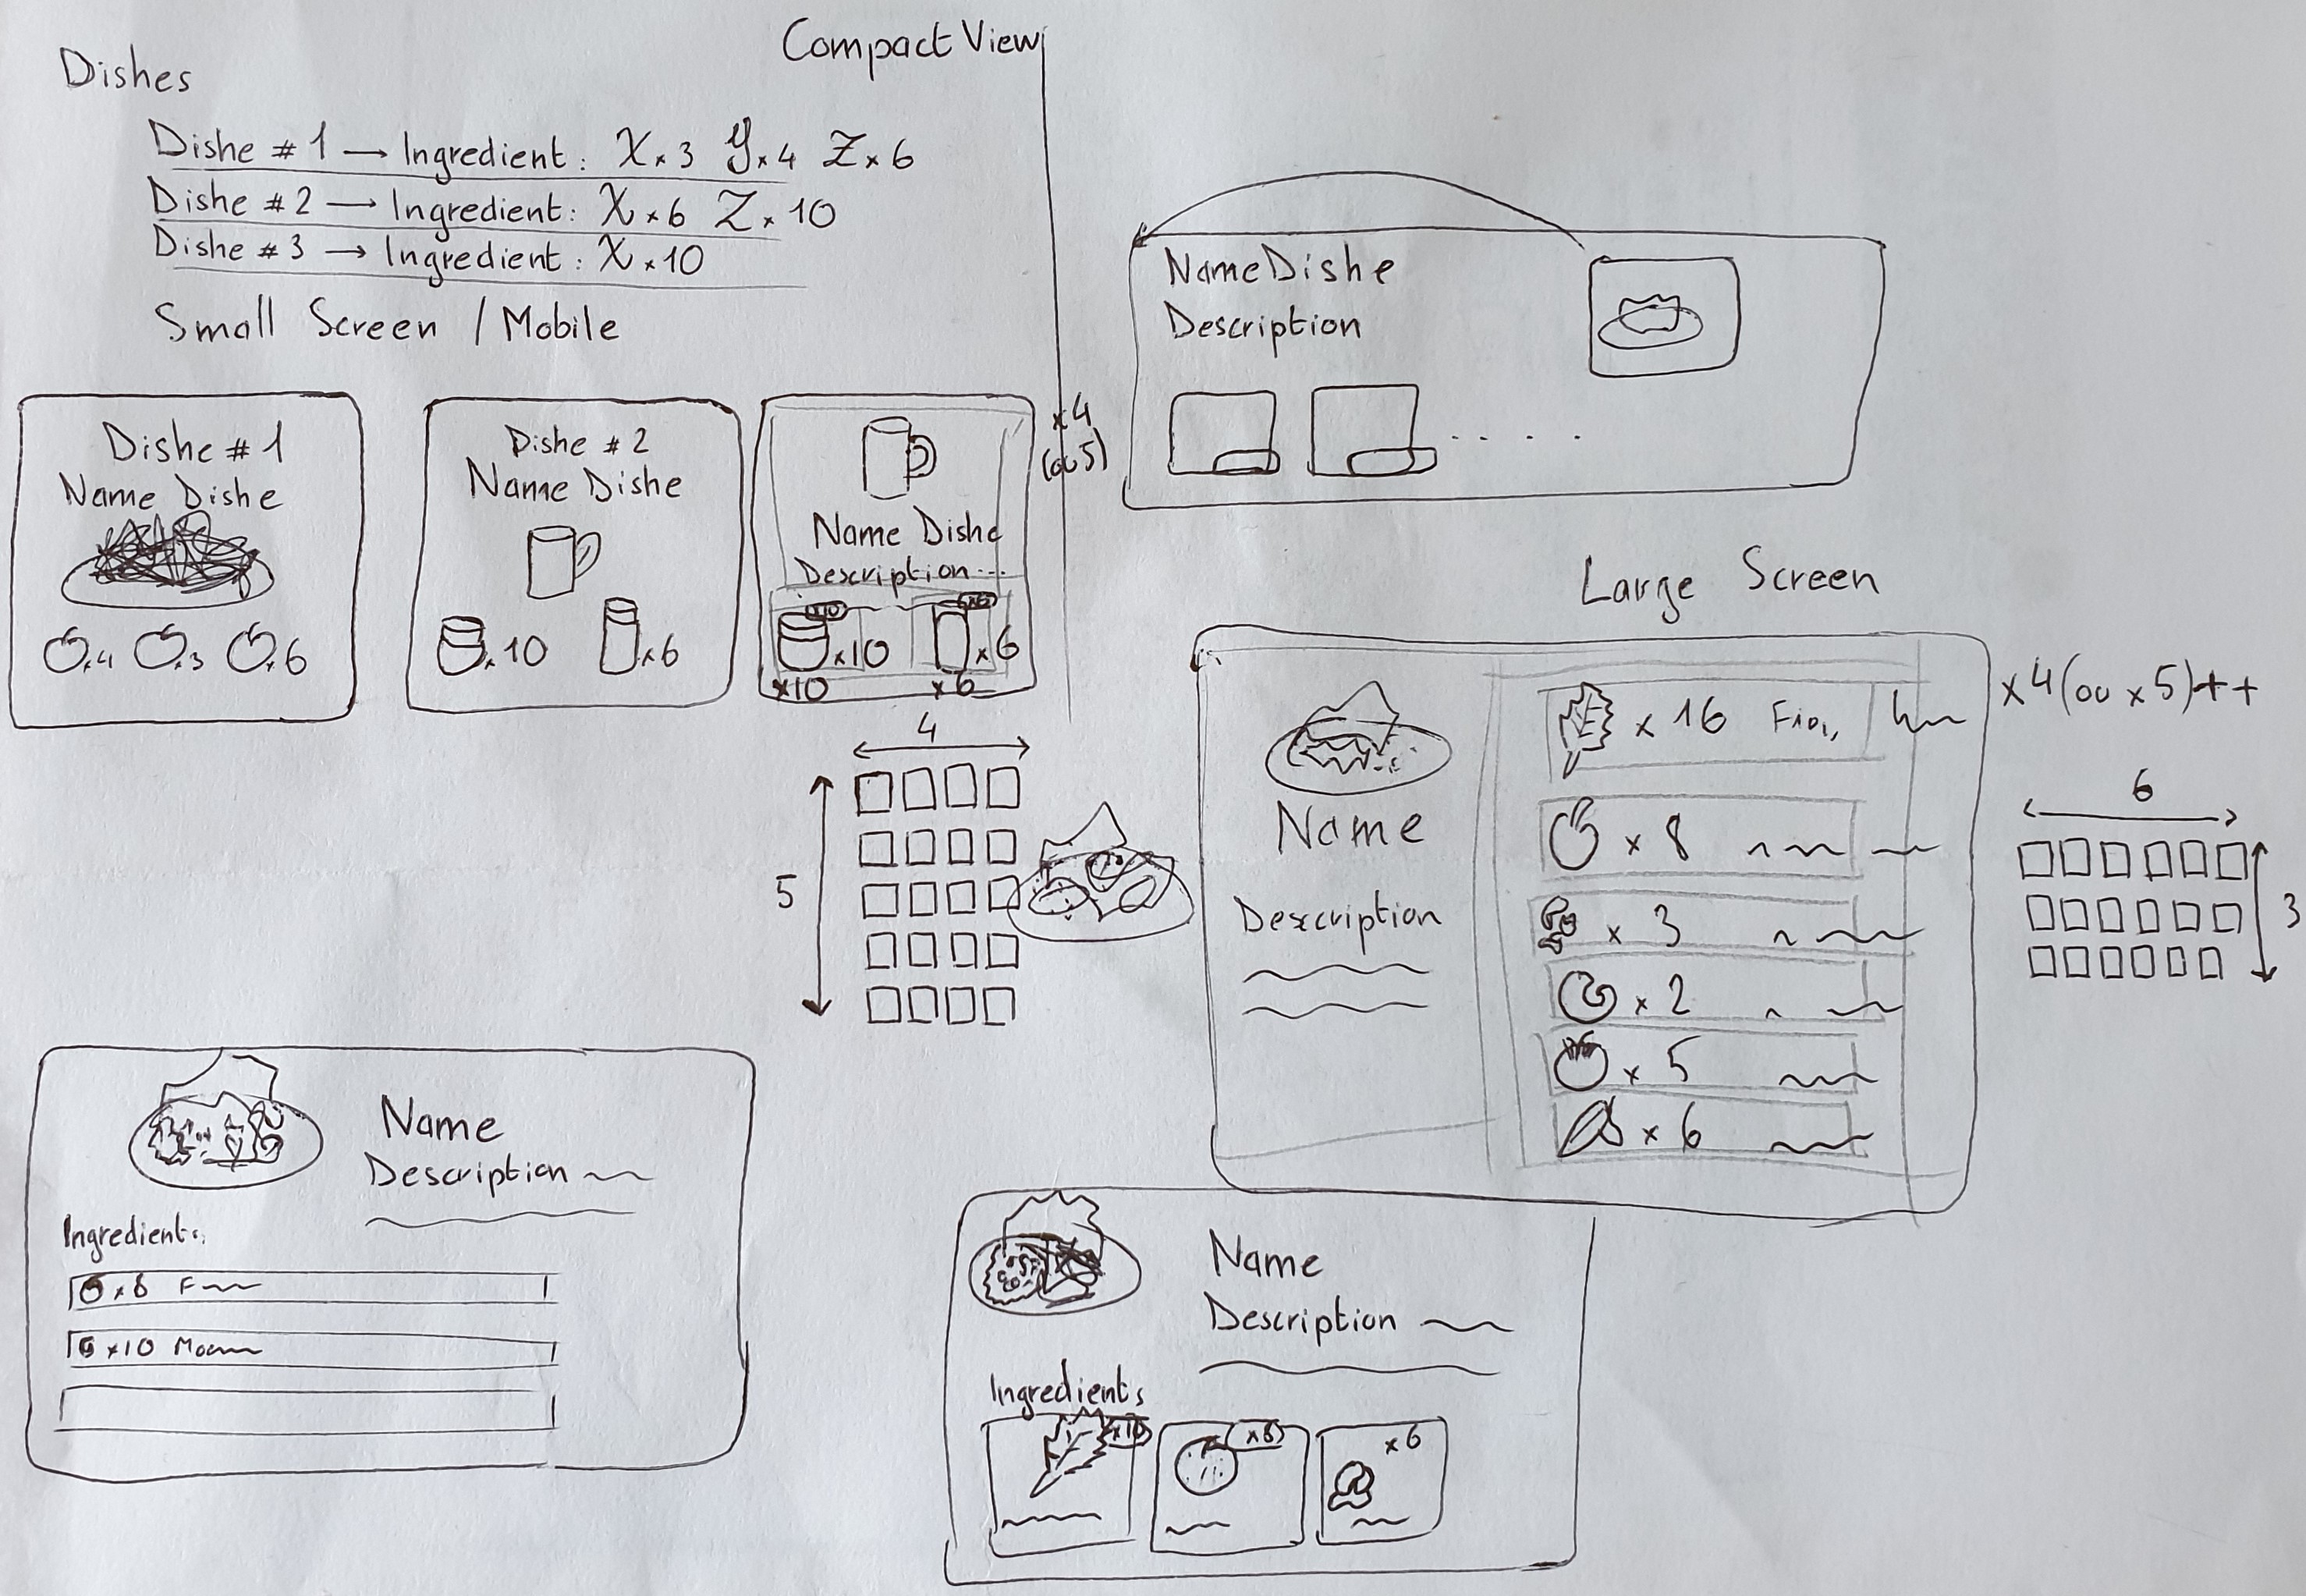 Compact View
Dishes
Dishe # 1 → Ingredient : X x 3 Y x 4 Z x 6
Dishe # 2 → Ingredient : X x 6 Z x 10
Dishe # 3 → Ingredient : X x 10
Small Screen / Mobile
Dishe # 1
Name Dishe
x 4 x 3 x 6
Dishe # 2
Name Dishe
x 10 x 6
Name Dishe
Description ...
x10 x6
x 10 x 6
x10 x6
x 4
(ou 5)
Name Dishe
Description
. . . .
4
5
Large Screen
Name
Description
x 16
x 8
x 3
x 2
x 5
x 6
x 4 (ou x 5) ++
6
3
Name
Description
Ingredients
x 8
x 10
Name
Description
Ingredients
x10 x8 x 6